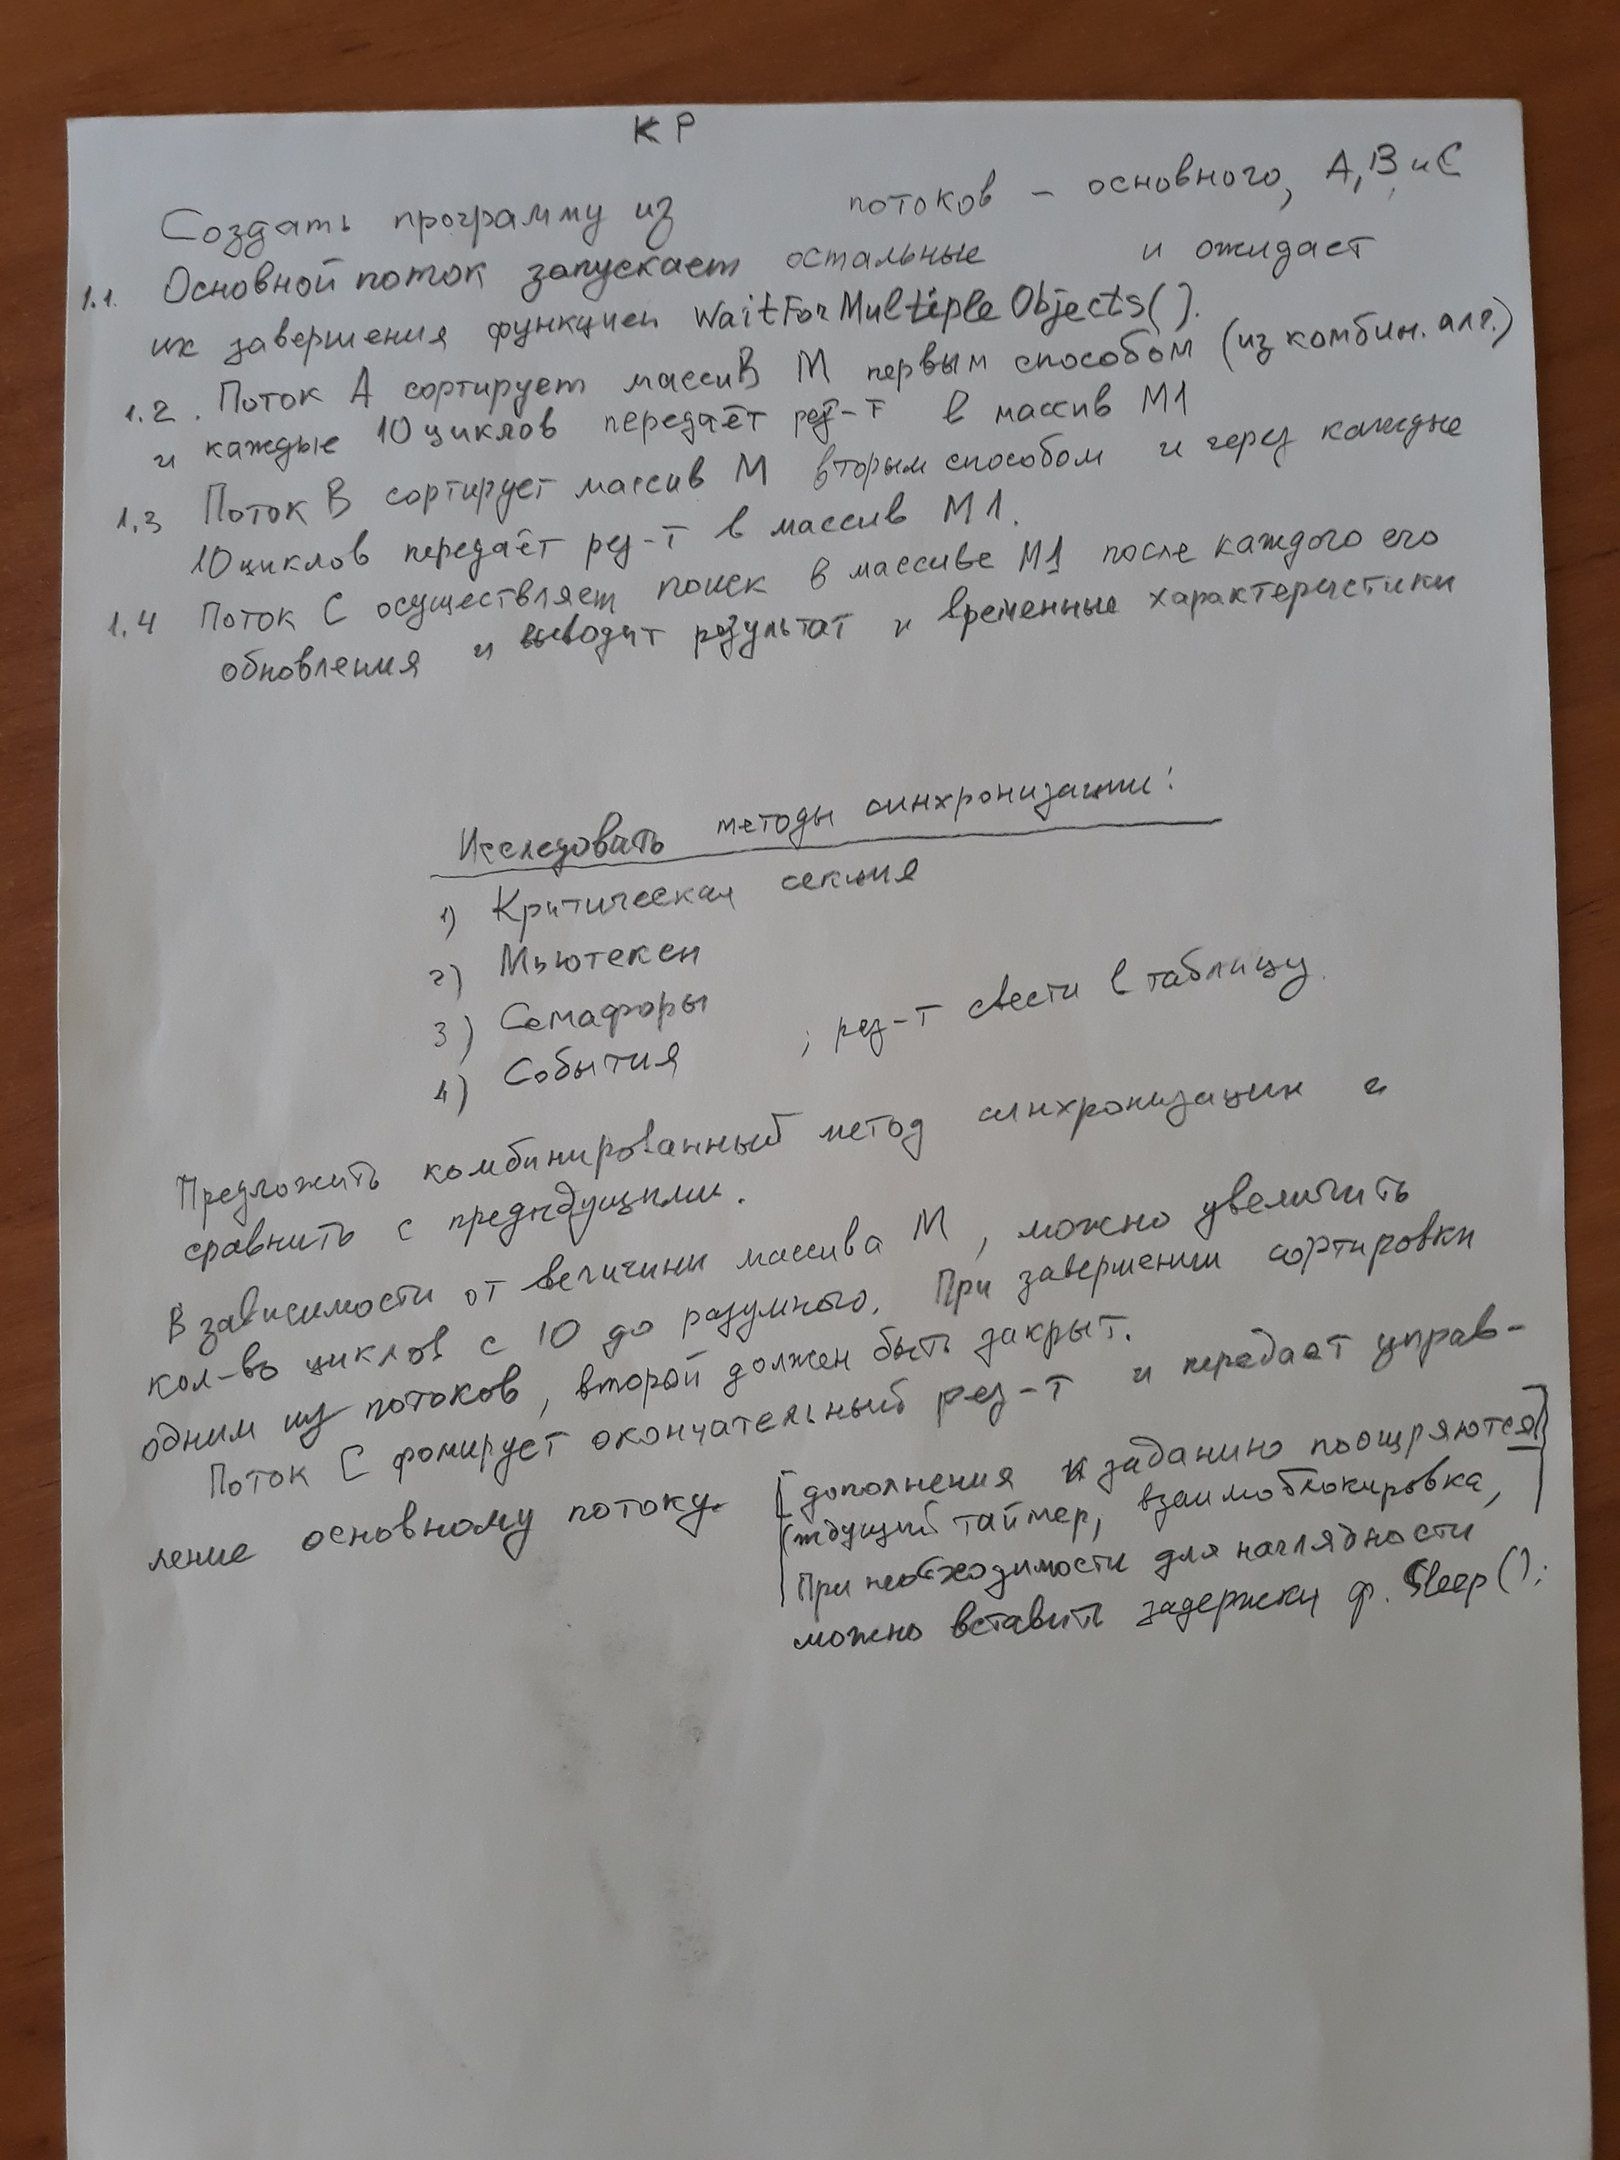 КР
Создать программу из потоков – основного, А, В и С
1.1. Основной поток запускает остальные и ожидает
их завершения функцией WaitForMultipleObjects().
1.2. Поток А сортирует массив М первым способом (из комбин. алг.)
и каждые 10 циклов передаёт рез-т в массив М1
1.3 Поток В сортирует массив М вторым способом и через каждые
10 циклов передаёт рез-т в массив М1.
1.4 Поток С осуществляет поиск в массиве М1 после каждого его
обновления и выводит результат и временные характеристики
Исследовать методы синхронизации:
1) Критическая секция
2) Мьютексы
3) Семафоры
4) События ; рез-т свести в таблицу.
Предложить комбинированный метод синхронизации и
сравнить с предыдущими.
В зависимости от величины массива М, можно увеличить
кол-во циклов с 10 до разумного. При завершении сортировки
одним из потоков, второй должен быть закрыт.
Поток С фомирует окончательный рез-т и передает управ-
ление основному потоку.
[дополнения к заданию поощряются]
(ждущий таймер, взаимоблокировка,
При необходимости для наглядности
можно вставить задержки ф. Sleep();